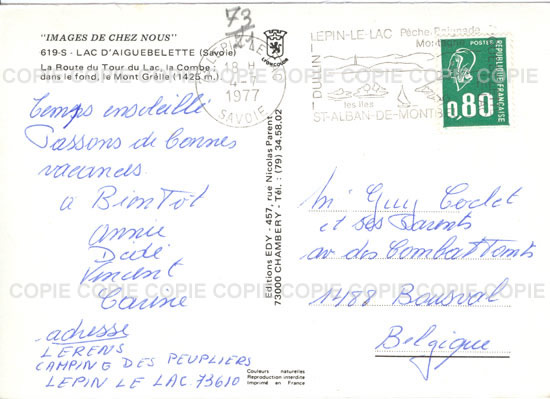 "IMAGES DE CHEZ NOUS"
619-S - LAC D'AIGUEBELETTE (Savoie)
La Route du Tour du Lac, la Combe ;
dans le fond, le Mont Grêle (1425 m.)
73
LYONCOLOR
18 H
1977
SAVOIE
LEPIN-LE-LAC Pêche Baignade
DULLIN
les îles
ST-ALBAN-DE-MONTB
POSTES
REPUBLIQUE FRANÇAISE
0,80
Temps ensoleillé
Passons de bonnes
vacances
à Bientôt
Annie
Dédé
Vincent
Carine
adresse
LERENS
CAMPING DES PEUPLIERS
LEPIN LE LAC 73610
Editions EDY - 457, rue Nicolas Parent
73000 CHAMBERY - Tél. : (79) 34.58.02
Couleurs naturelles
Reproduction interdite
Imprimé en France
Mr Guy Coclet
et ses Parents
av des Combattants
1488 Bousval
Belgique
COPIE COPIE COPIE COPIE COPIE COPIE COPIE
COPIE COPIE COPIE COPIE COPIE COPIE COPIE
COPIE COPIE COPIE COPIE COPIE COPIE COPIE